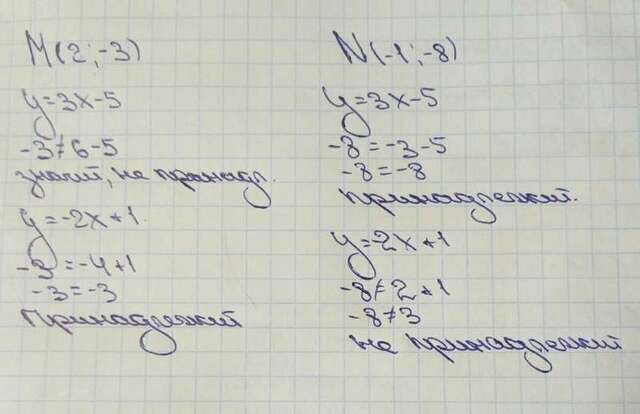 M(2;-3)
y=3x-5
-3≠6-5
значит, не принадл.
y=-2x+1.
-3=-4+1
-3=-3
принадлежит
N(-1;-8)
y=3x-5
-8=-3-5
-8=-8
принадлежит.
y=-2x+1
-8≠2+1
-8≠3
не принадлежит